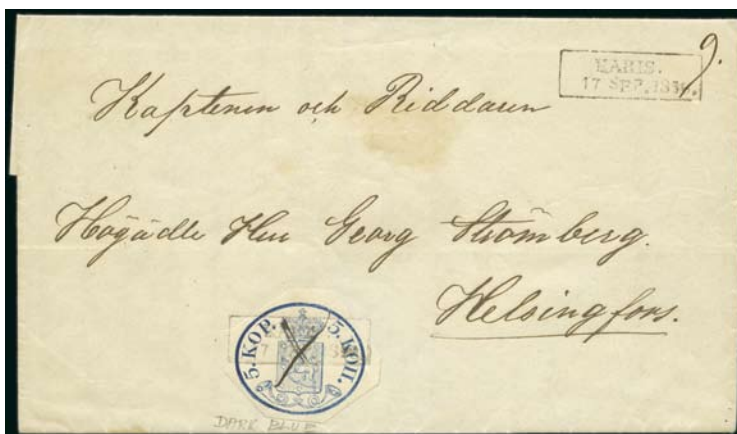 9.
KARIS.
17 SEP. 1856.
Kaptenen och Riddaren
Högädle Herr Georg Strömberg.
Helsingfors.
5. KOP. 5. КОП.
DARK BLUE